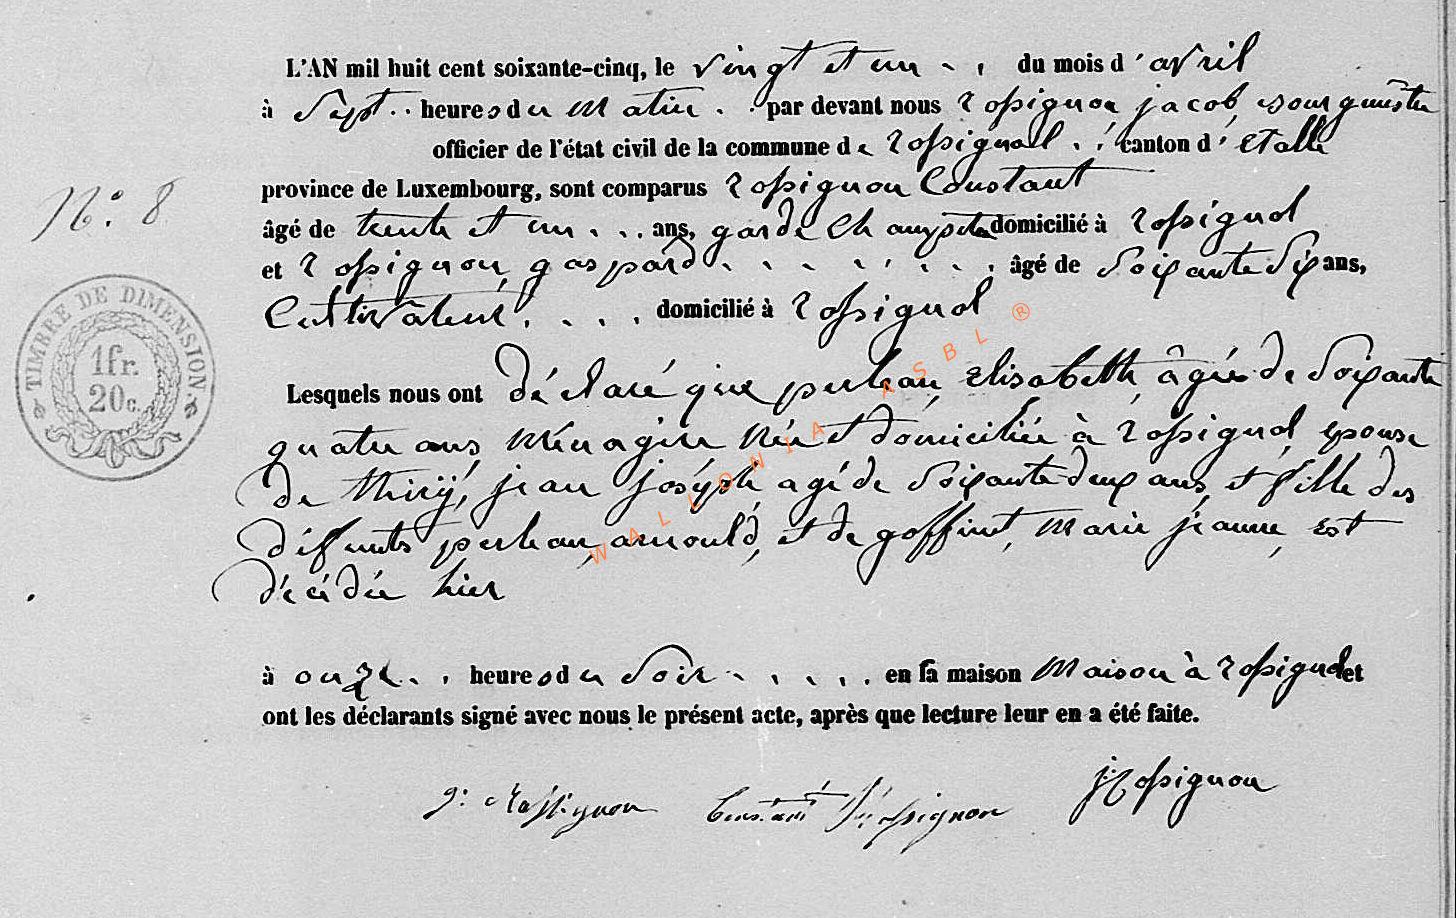 L'AN mil huit cent soixante-cinq, le vingt et un du mois d'avril
à Sept heures du matin par devant nous rossignon jacob, bourgumestre
officier de l'état civil de la commune de rossignol canton d'étalle
N.° 8
province de Luxembourg, sont comparus rossignon Constant
âgé de trente et un ans, garde Champetre domicilié à rossignol
et rossignon, gaspard âgé de Soixante Six ans,
Cultivateur domicilié à rossignol
TIMBRE DE DIMENSION
1fr.
20c.
Lesquels nous ont déclaré que perleau, Elisabeth, âgée de Soixante
quatre ans, ménagère, née et domiciliée à rossignol, epouse
de thiry, jean joséph, agé de Soixante deux ans, et fille des
défunts perleau, arnould, et de goffint, marie jeanne, est
décédée hier
à onze heures du Soir en sa maison maison à rossignol et
ont les déclarants signé avec nous le présent acte, après que lecture leur en a été faite.
g: Rossignon Constant Rossignon j: Rossignon
WALLONIA ASBL ®